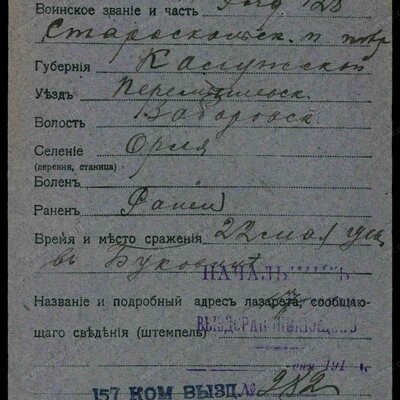 Воинское званіе и часть Ряд 128
Старооскольск. п.
Губернія Калужской
Уѣздъ Перемышльск.
Волость Заборовск.
Селеніе
(деревня, станица)
Боленъ
Раненъ Ранен
Время и мѣсто сраженія 22 мая
въ Буковин
НАЧАЛЬНИКЪ
Названіе и подробный адресъ лазарета, сообщаю-
щаго свѣдѣнія (штемпель)
ВЫЗДОРАВЛИВАЮЩИХЪ
191 г.
157 КОМ ВЫЗД. № 282